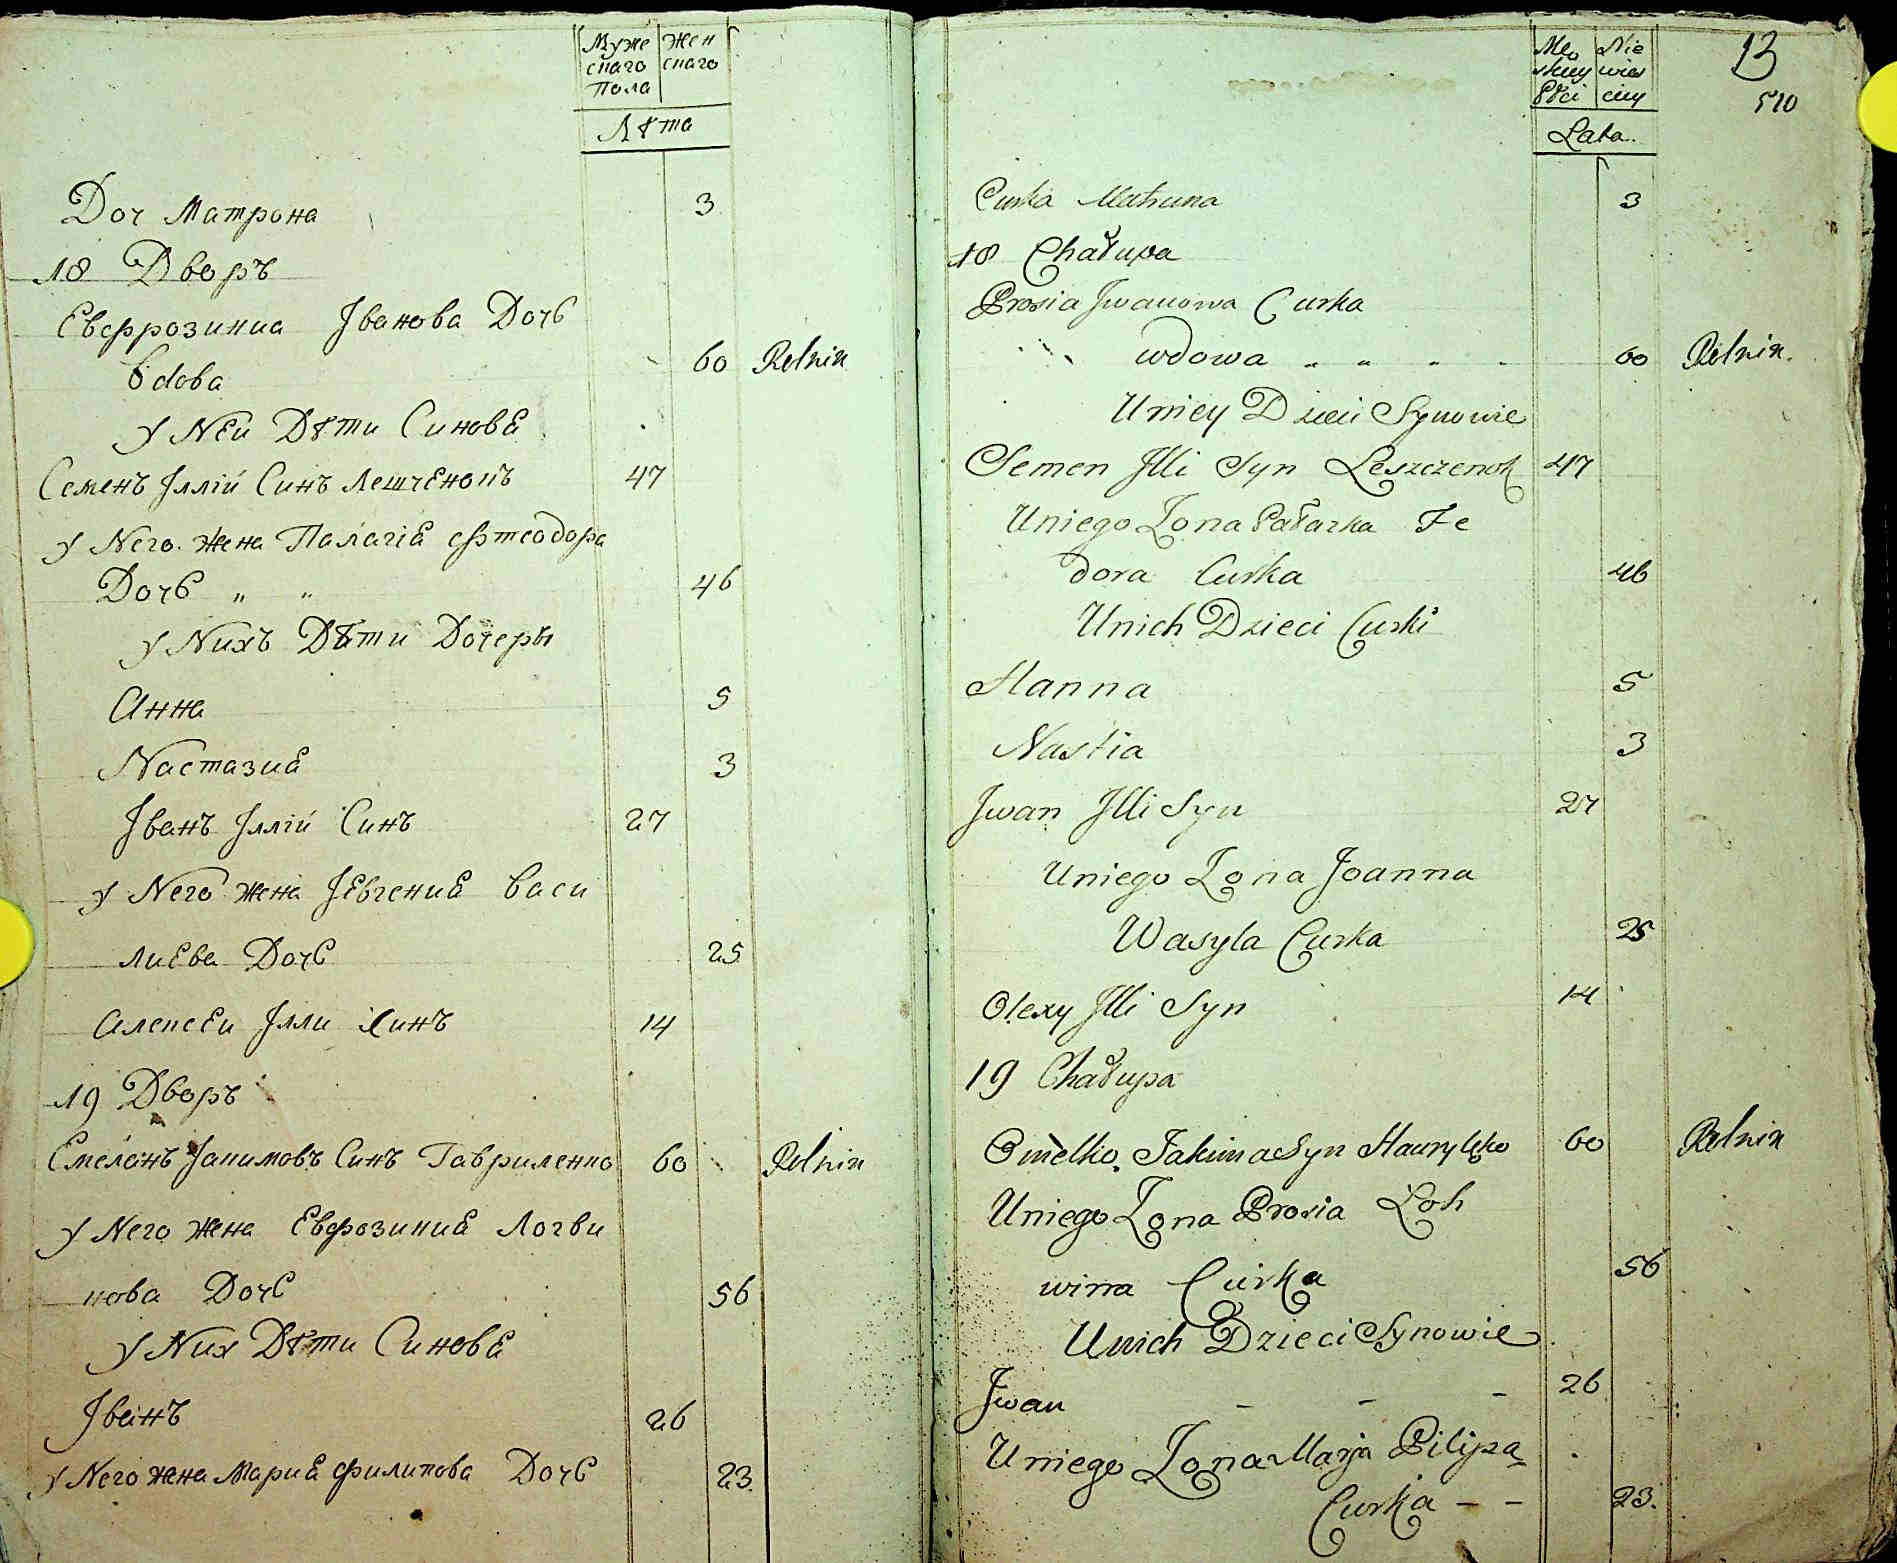 Муже Жен
скаго скаго
Пола
Лѣта
Доч Матрона 3
18 Дворъ
Евфрозиниа Іванова Дочь
Вdова 60 Rolnik
У Nей Дѣти Синовѣ
Семенъ Іллій Синъ Лешченокъ 47
У Nего Жена Палагіѣ Фтеодора
Дочь „ „ 46
У Nихъ Дѣти Дочеры
Анна 5
Nастазиѣ 3
Іванъ Іллій Синъ 27
У Nего Жена Іевгениѣ Васи
лиева Дочь 25
Алексѣи Ілли Синъ 14
19 Дворъ
Емеланъ Іакимовъ Синъ Гавриленко 60 Rolnik
У Nего Жена Евфрозиниѣ Логви
нова Дочь 56
У Nих Дѣти Синовѣ
Іванъ 26
У Nего Жена Мариѣ Филипова Дочь 23
13
510
Męskiey Niewiesciey
Płci
Lata.
Curka Matruna 3
18 Chałupa
Prosia Jwanowa Curka
wdowa „ „ „ - 60 Rolnik.
Uniey Dzieci Synowie
Semen Jlli Syn Leszczenok 47
Uniego Zona Pałazka Fe
dora Curka 46
Unich Dzieci Curki
Hanna 5
Nastia 3
Jwan Jlli Syn 27
Uniego Zona Joanna
Wasyla Curka 25
Olexy Jlli Syn 14
19 Chałupa
Omelko Jakima Syn Hawryłęko 60 Rolnik
Uniego Zona Prosia Łoh
wina Curka 56
Unich Dzieci Synowie
Jwan - - - 26
Uniego Zona Marja Pilipa
Curka - - 23.